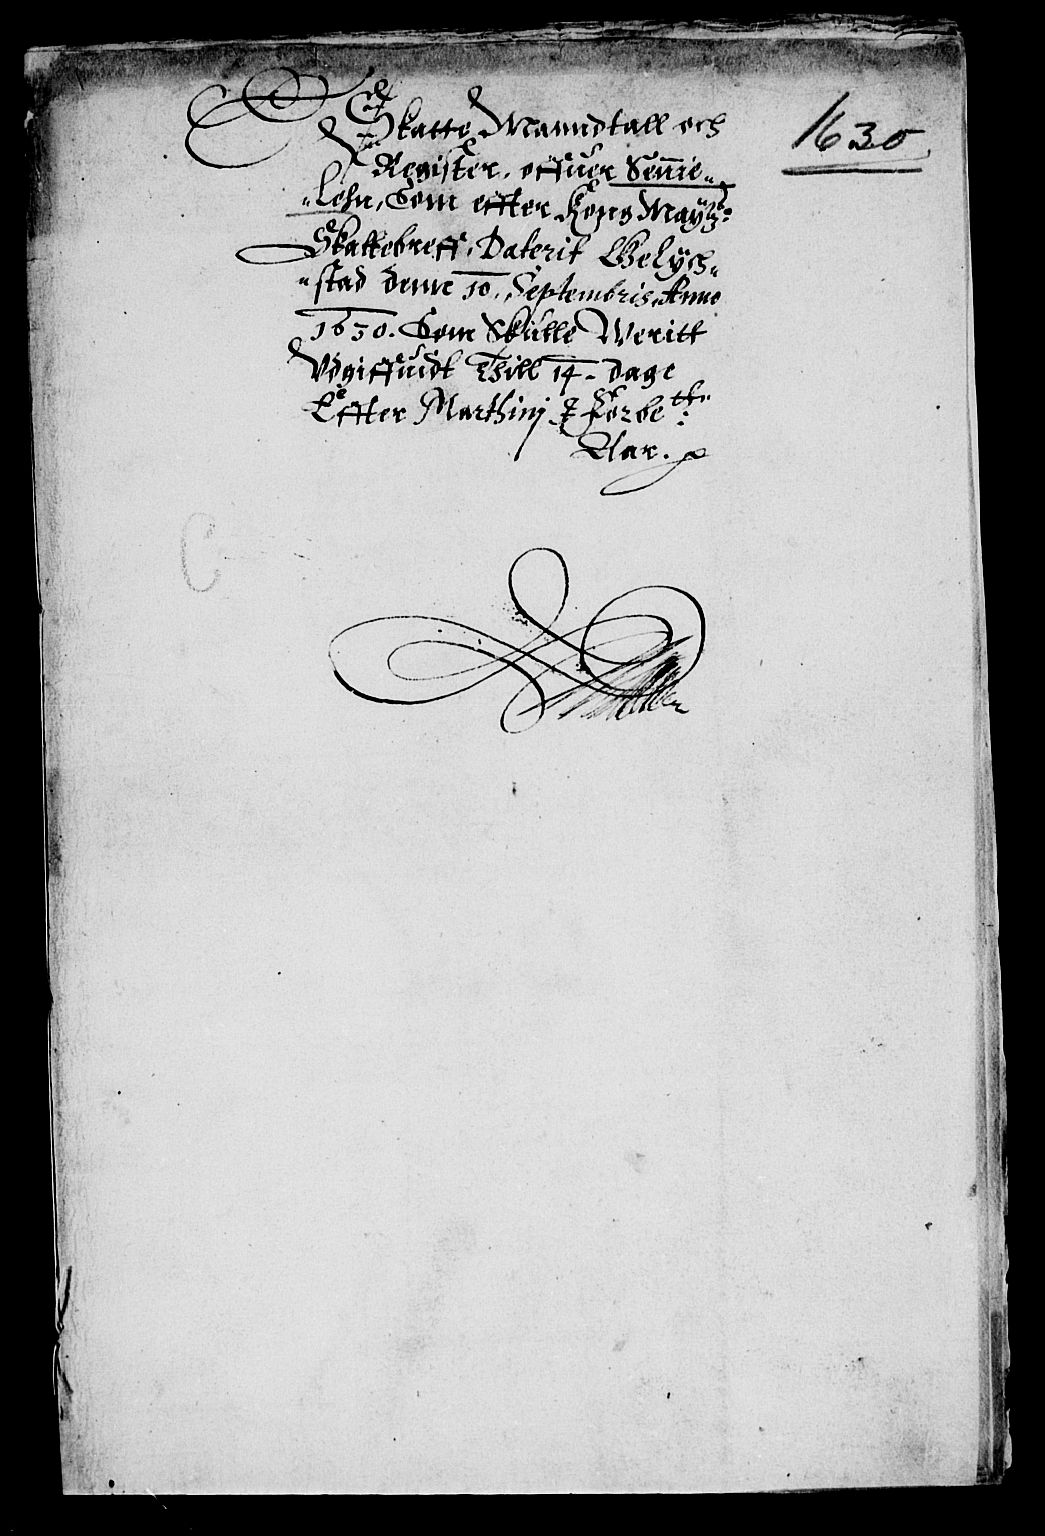 Et
Skatte Manndtall och
Register, offuer Sennie„
„lehn, Som effter Kong Mayttz:
Skattebreff, Daterit Gelÿch„
„stad denn 10. Septembris Anno
1630. Som Skulle Weritt
Vdgiffuidt Thill 14. Dage
Effter Marthinj Forbete:
Aar.
1630